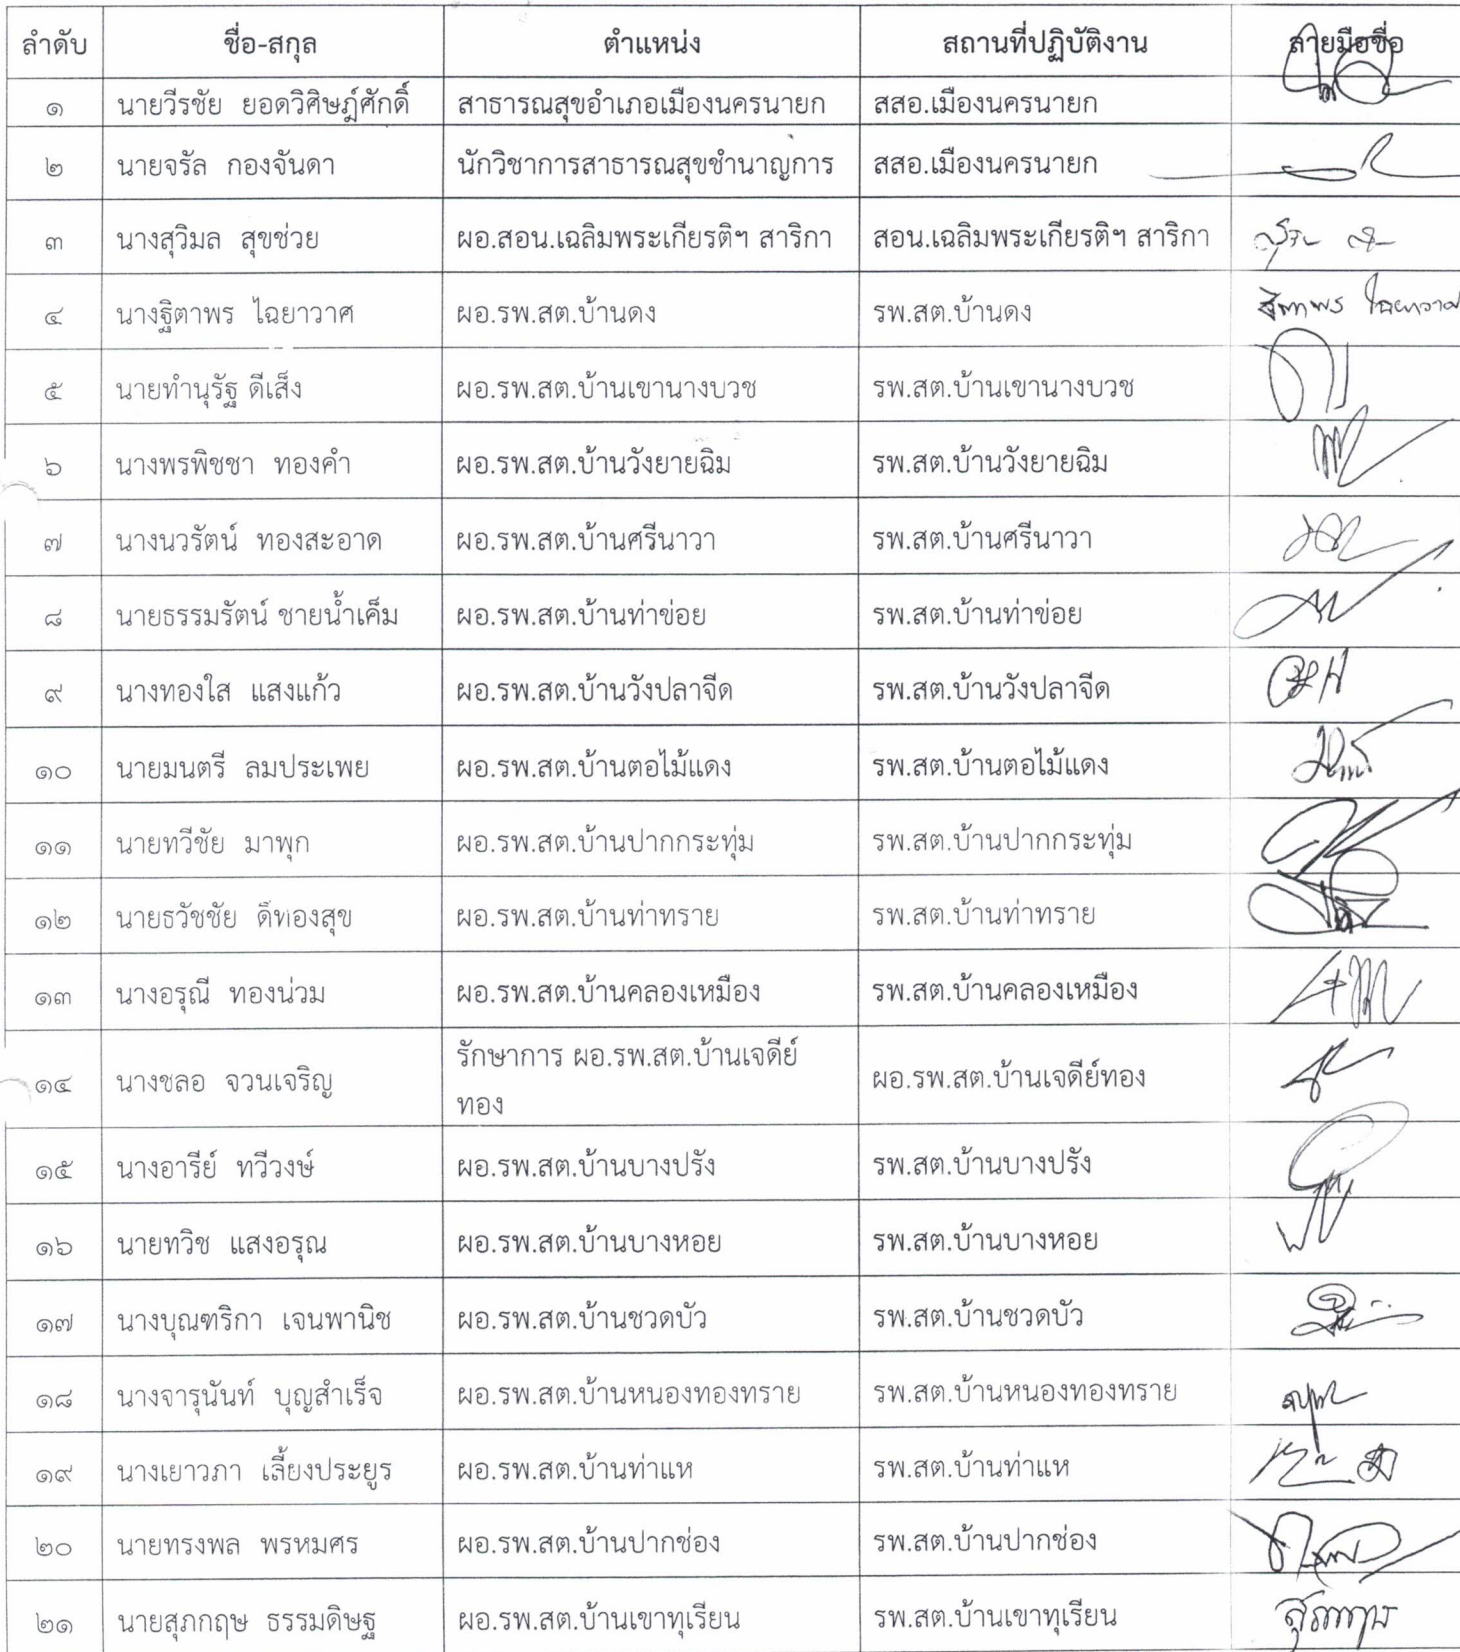 ลำดับ ชื่อ-สกุล ตำแหน่ง สถานที่ปฏิบัติงาน ลายมือชื่อ
๑ นายวีรชัย ยอดวิศิษฎ์ศักดิ์ สาธารณสุขอำเภอเมืองนครนายก สสอ.เมืองนครนายก
๒ นายจรัล กองจันดา นักวิชาการสาธารณสุขชำนาญการ สสอ.เมืองนครนายก
๓ นางสุวิมล สุขช่วย ผอ.สอน.เฉลิมพระเกียรติฯ สาริกา สอน.เฉลิมพระเกียรติฯ สาริกา
๔ นางฐิตาพร ไฉยาวาศ ผอ.รพ.สต.บ้านดง รพ.สต.บ้านดง ฐิตาพร ไฉยาวาศ
๕ นายทำนุรัฐ ดีเส็ง ผอ.รพ.สต.บ้านเขานางบวช รพ.สต.บ้านเขานางบวช
๖ นางพรพิชชา ทองคำ ผอ.รพ.สต.บ้านวังยายฉิม รพ.สต.บ้านวังยายฉิม
๗ นางนวรัตน์ ทองสะอาด ผอ.รพ.สต.บ้านศรีนาวา รพ.สต.บ้านศรีนาวา
๘ นายธรรมรัตน์ ชายน้ำเค็ม ผอ.รพ.สต.บ้านท่าข่อย รพ.สต.บ้านท่าข่อย
๙ นางทองใส แสงแก้ว ผอ.รพ.สต.บ้านวังปลาจืด รพ.สต.บ้านวังปลาจืด
๑๐ นายมนตรี ลมประเพย ผอ.รพ.สต.บ้านตอไม้แดง รพ.สต.บ้านตอไม้แดง
๑๑ นายทวีชัย มาพุก ผอ.รพ.สต.บ้านปากกระทุ่ม รพ.สต.บ้านปากกระทุ่ม
๑๒ นายธวัชชัย ดีทองสุข ผอ.รพ.สต.บ้านท่าทราย รพ.สต.บ้านท่าทราย
๑๓ นางอรุณี ทองน่วม ผอ.รพ.สต.บ้านคลองเหมือง รพ.สต.บ้านคลองเหมือง
๑๔ นางชลอ จวนเจริญ รักษาการ ผอ.รพ.สต.บ้านเจดีย์ ผอ.รพ.สต.บ้านเจดีย์ทอง
ทอง
๑๕ นางอารีย์ ทวีวงษ์ ผอ.รพ.สต.บ้านบางปรัง รพ.สต.บ้านบางปรัง
๑๖ นายทวิช แสงอรุณ ผอ.รพ.สต.บ้านบางหอย รพ.สต.บ้านบางหอย
๑๗ นางบุณฑริกา เจนพานิช ผอ.รพ.สต.บ้านชวดบัว รพ.สต.บ้านชวดบัว
๑๘ นางจารุนันท์ บุญสำเร็จ ผอ.รพ.สต.บ้านหนองทองทราย รพ.สต.บ้านหนองทองทราย
๑๙ นางเยาวภา เลี้ยงประยูร ผอ.รพ.สต.บ้านท่าแห รพ.สต.บ้านท่าแห
๒๐ นายทรงพล พรหมศร ผอ.รพ.สต.บ้านปากช่อง รพ.สต.บ้านปากช่อง
๒๑ นายสุภกฤษ ธรรมดิษฐ ผอ.รพ.สต.บ้านเขาทุเรียน รพ.สต.บ้านเขาทุเรียน สุภกฤษ